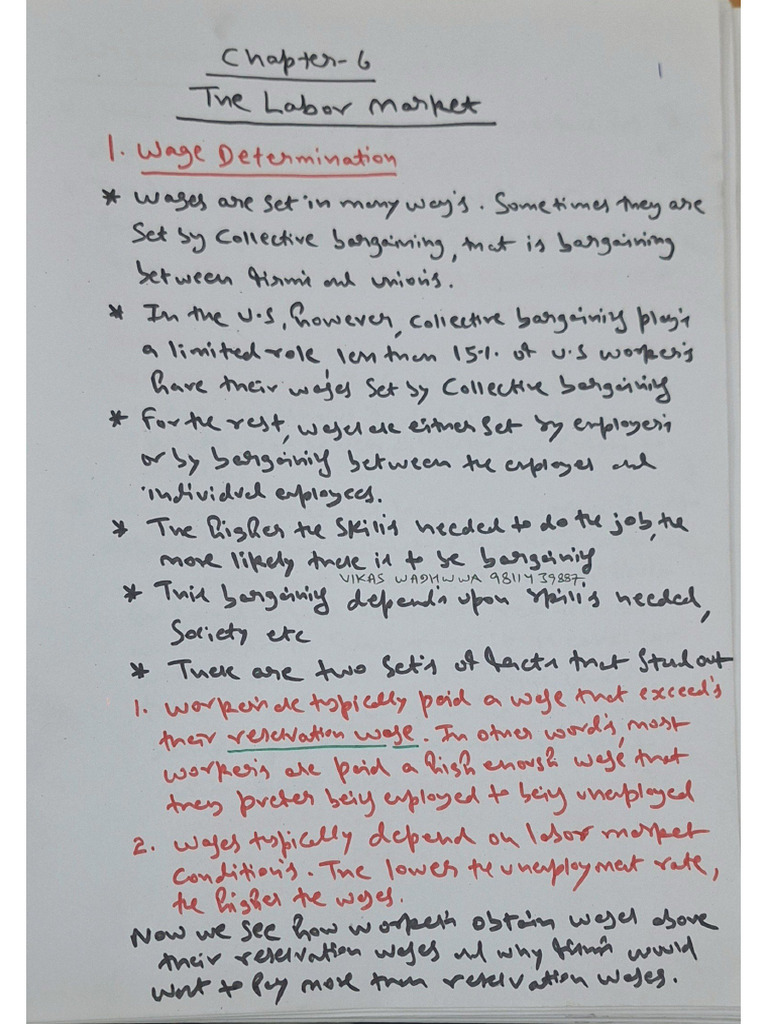 Chapter-6
1
The Labor Market
1. Wage Determination
* Wages are set in many way's. Sometimes they are
set by Collective bargaining, that is bargaining
between firms and unions.
* In the U.S, however, collective bargaining plays
a limited role, less than 15% of U.S workers
have their wages set by Collective bargaining
* For the rest, wages are either set by employers
or by bargaining between the employer and
individual employees.
* The higher the skills needed to do the job, the
more likely there is to be bargaining
VIKAS WADHWWA 9811439887.
* This bargaining depends upon skills needed,
Society etc
* There are two sets of facts that stud out
1. Workers are typically paid a wage that exceeds
their reservation wage. In other words, most
workers are paid a high enough wage that
they prefer being employed to being unemployed
2. Wages typically depend on labor market
conditions. The lower the unemployment rate,
the higher the wages.
Now we see how workers obtain wages above
their reservation wages and why firms would
want to pay more than reservation wages.